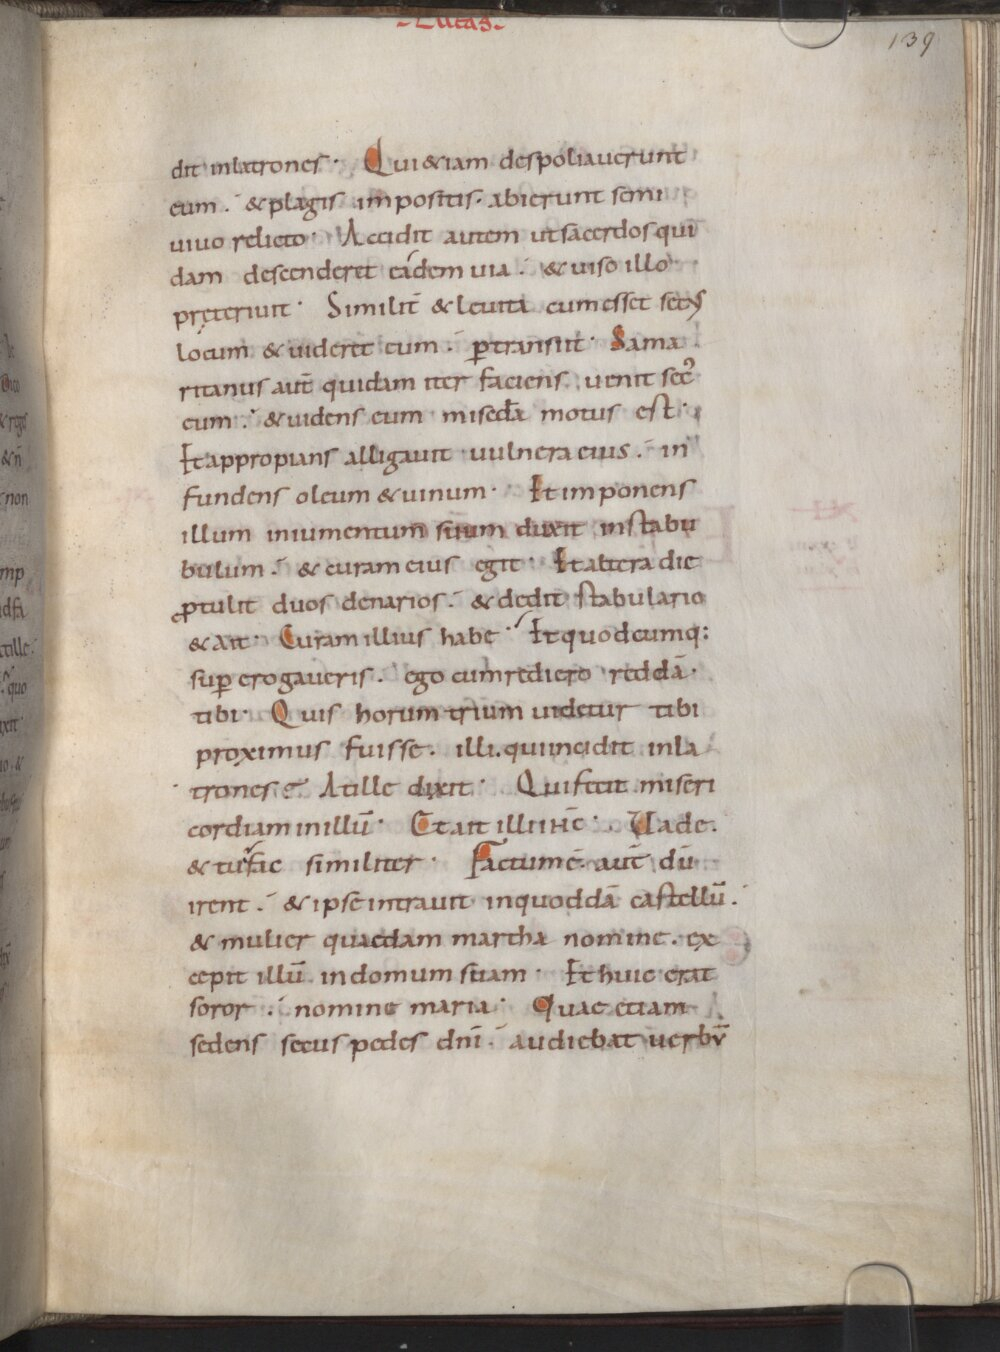 -Lucas-
139
dit inlatrones· Qui&iam despoliauerunt
eum. &plagis impositis. abierunt semi
uiuo relicto· Accidit autem utsacerdosqui
dam descenderet eadem uia. &uiso illo
pręteriuit· Similit̄ &leuita cumesset secus
locum &uideret eum. ꝑtransiit· Sama
ritanus aut̄ quidam iter faciens uenit sec᷒
eum. &uidens eum misc̄dia motus est·
Etappropians alligauit uulnera eius. in
fundens oleum &uinum· Etimponens
illum iniumentum suum duxit instabu
bulum. &curam eius egit· Etaltera die
ꝓtulit duos denarios. &dedit stabulario
&ait· Curam illius habe· Etquodcumq:
suꝑerogaueris. ego cumrediero reddā·
tibi· Quis horum trium uidetur tibi
proximus fuisse. illi.quiincidit inla
trones? Atille dixit· Quifecit miseri
cordiam inillū· Etait illiihc̄· Uade.
&tufac similiter· Factumē. aut̄ dū
irent. &ipseintrauit inquoddā castellū.
&mulier quaedam martha nomine. ex
cepit illū. indomum suam· Ethuic erat
soror. nomine maria· Quae etiam
sedens secus pedes dn̄i. audiebat uerbū